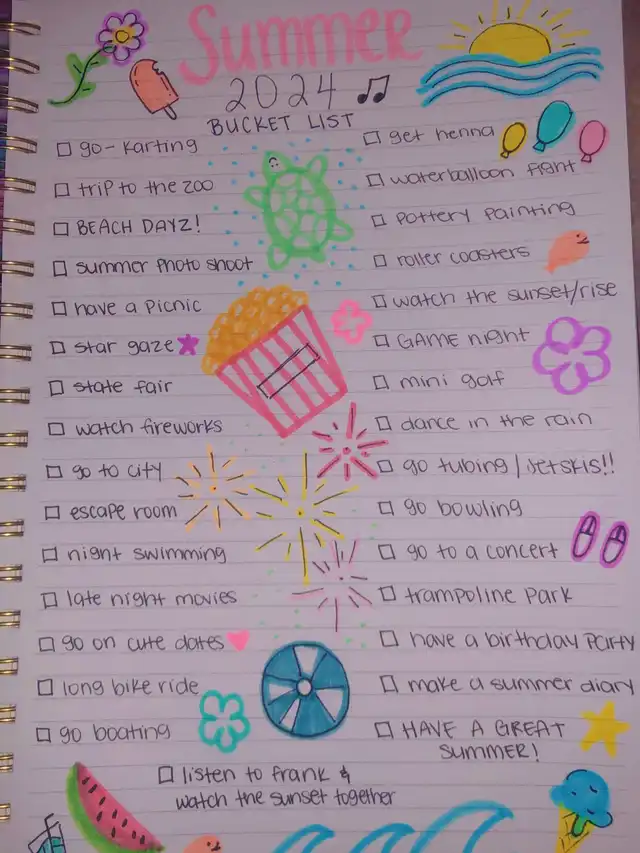 Summer
2024
BUCKET LIST
go-karting
trip to the zoo
BEACH DAYZ!
summer photo shoot
have a picnic
star gaze
state fair
watch fireworks
go to city
escape room
night swimming
late night movies
go on cute dates
long bike ride
go boating
get henna
waterballoon fight
pottery painting
roller coasters
watch the sunset/rise
GAME night
mini golf
dance in the rain
go tubing/jetskis!!
go bowling
go to a concert
trampoline park
have a birthday party
make a summer diary
HAVE A GREAT
SUMMER!
listen to frank &
watch the sunset together